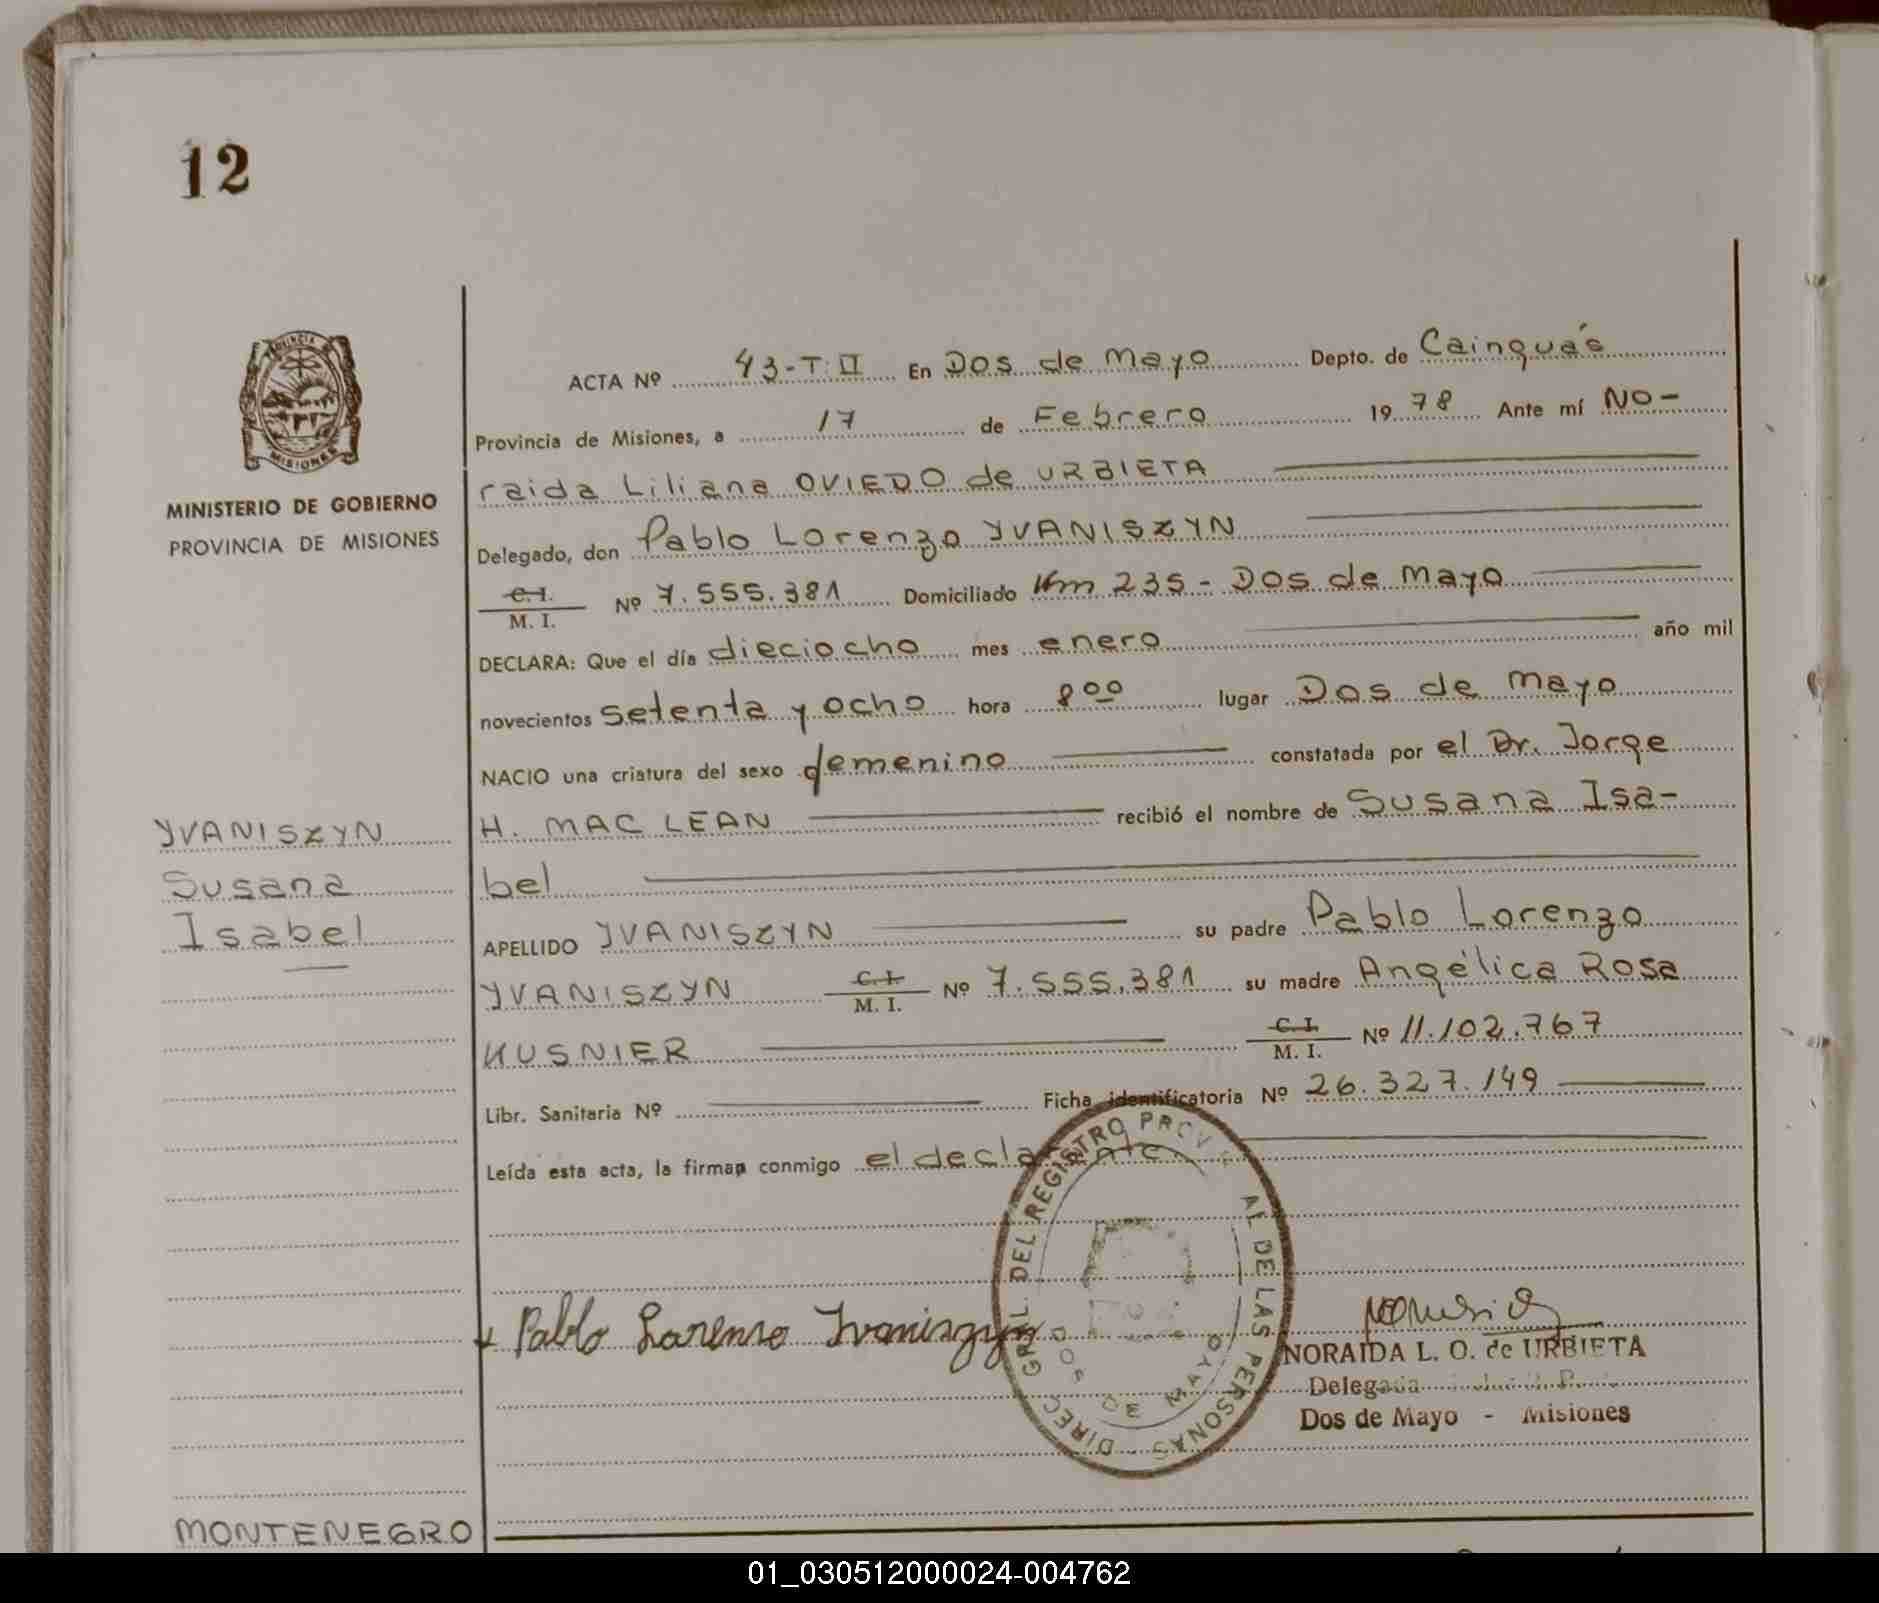 12
PROVINCIA
MISIONES
MINISTERIO DE GOBIERNO
PROVINCIA DE MISIONES
YVANISZYN
Susana
Isabel
MONTENEGRO
ACTA Nº 43-T:II En Dos de Mayo Depto. de Cainguás
Provincia de Misiones, a 17 de Febrero 19 78 Ante mí NO-
raida Liliana OVIEDO de URBIETA
Delegado, don Pablo Lorenzo YVANISZYN
C. I.
M. I. Nº 7.555.381 Domiciliado Km 235 - Dos de Mayo
DECLARA: Que el día dieciocho mes enero año mil
novecientos setenta y ocho hora 8 00 lugar Dos de Mayo
NACIO una criatura del sexo femenino constatada por el Dr. Jorge
H. MAC LEAN recibió el nombre de Susana Isa-
bel
APELLIDO YVANISZYN su padre Pablo Lorenzo
YVANISZYN C. I. M. I. Nº 7.555.381 su madre Angélica Rosa
KUSNIER C. I. M. I. Nº 11.102.767
Libr. Sanitaria Nº Ficha identificatoria Nº 26.327.149
Leída esta acta, la firman conmigo el declarante
Pablo Lorenzo Yvaniszyn
DIREC. GRAL. DEL REGISTRO PROV AL DE LAS PERSONAS
DOS DE MAYO
NORAIDA L. O. de URBIETA
Delegada
Dos de Mayo - Misiones
01_030512000024-004762